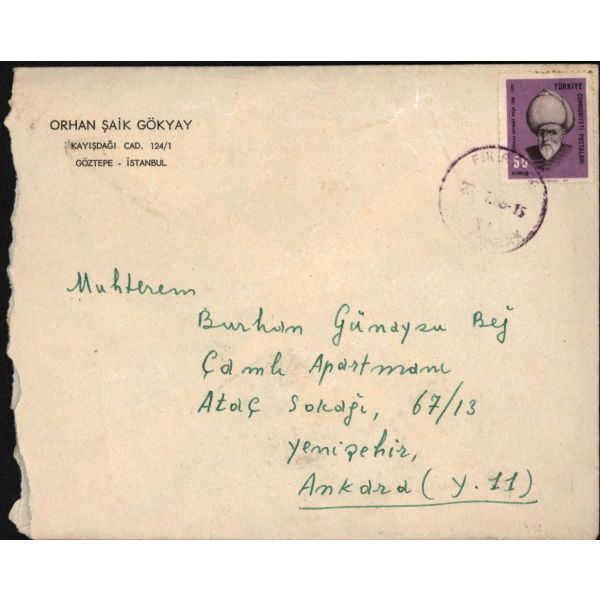 ORHAN ŞAİK GÖKYAY
KAYIŞDAĞI CAD. 124/1
GÖZTEPE - İSTANBUL
TÜRKİYE
CUMHURİYETİ POSTALARI
50
KURUŞ
Muhterem
Burhan Günaysu Beğ
Çamlı Apartmanı
Ataç Sokağı, 67/13
Yenişehir,
Ankara (Y.11)